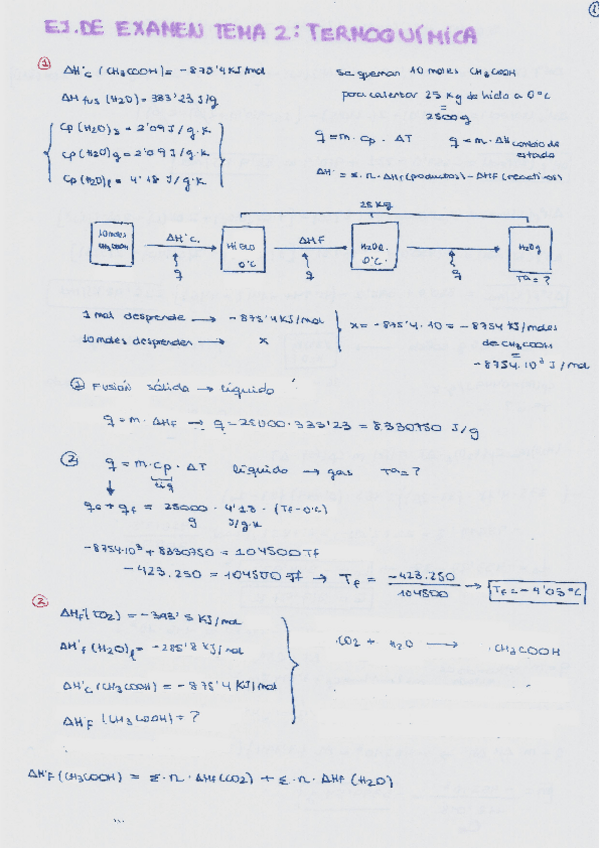 EJ. DE EXAMEN TEMA 2: TERMOQUÍMICA
① ΔH°c (CH3COOH) = -875'4 KJ/mol
ΔH fus (H2O) = 333'23 J/g
Cp (H2O)s = 2'09 J/g·K
Cp (H2O)g = 2'09 J/g·K
Cp (H2O)l = 4'18 J/g·K
se queman 10 moles CH3COOH
para calentar 25 Kg de hielo a 0°C
=
2500g
q = m · Cp · ΔT q = m · ΔH cambio de estado
ΔH = Σ·n·ΔHf (productos) - ΔHf (reactivos)
25 Kg
10 moles CH3COOH
ΔH°c.
q
Hielo 0°C
ΔHF
q
H2Ol. 0°C.
q
H2Og
Ta = ?
1 mol desprende → -875'4 KJ/mol
10 moles desprenden → x
x = -875'4 · 10 = -8754 KJ/moles
de CH3COOH
=
-8754·10³ J/mol
① Fusión sólida → líquido
q = m · ΔHF → q = 25000 · 333'23 = 8330750 J/g
② q = m · Cp · ΔT líquido → gas Ta = ?
liq
qc + qf = 25000 · 4'18 · (Tf - 0°C)
g J/g·K
-8754·10³ + 8330750 = 104500Tf
-423.250 = 104500 Tf → Tf = -423.250 / 104500 → Tf = -4'05°C
② ΔHf (CO2) = -393'5 KJ/mol
ΔH°f (H2O)l = -285'8 KJ/mol
ΔH°c (CH3COOH) = -875'4 KJ/mol
ΔH°F (CH3COOH) = ?
CO2 + H2O → CH3COOH
ΔH°F (CH3COOH) = Σ·n·ΔHf (CO2) + Σ·n·ΔHF (H2O)
...